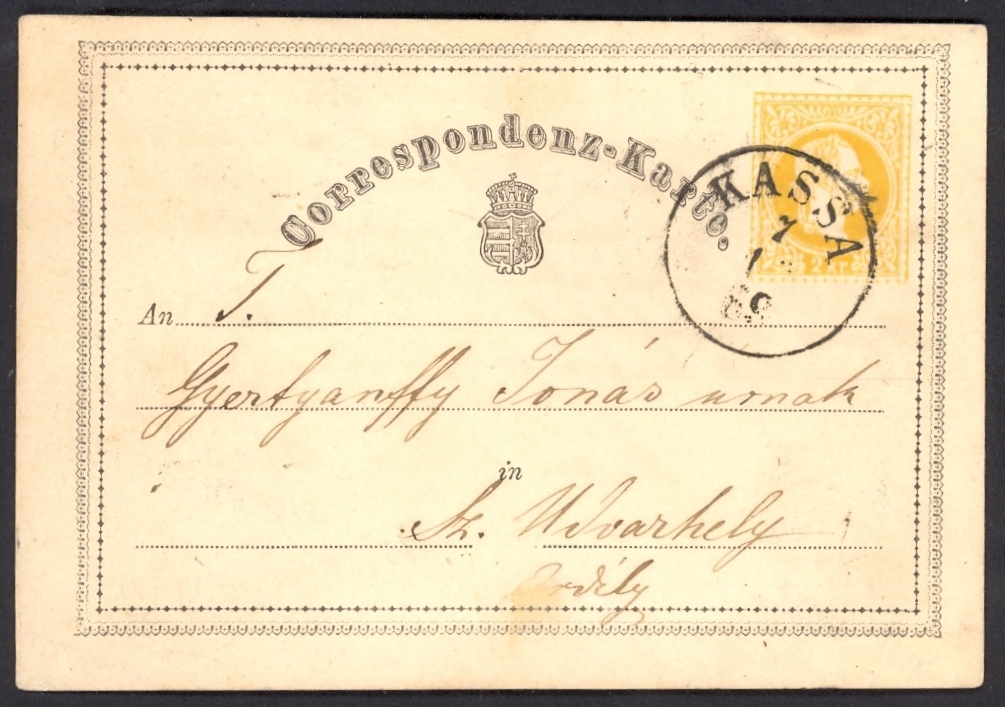 Correspondenz-Karte.
2 Kr.
KASSA
7
1
69
An T.
Gyertyanffy Jonás urnak
in
Sz. Udvarhely
Erdély